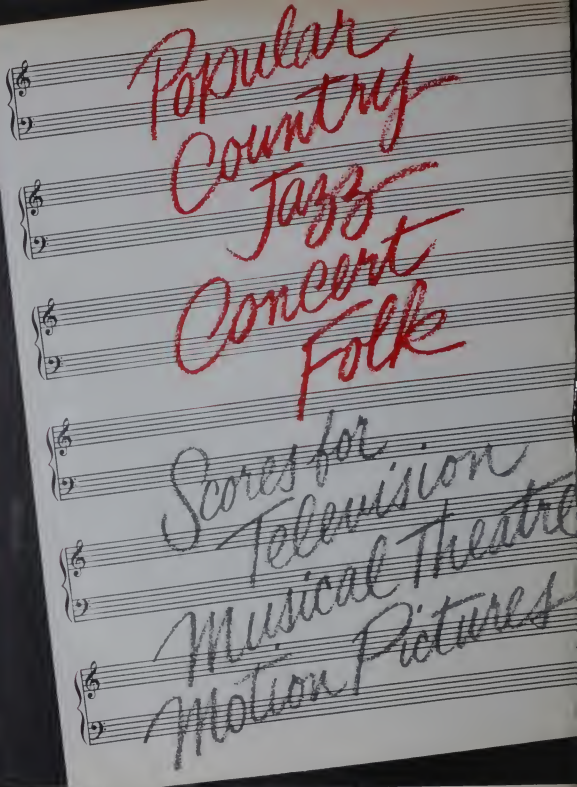 Popular
Country
Jazz
Concert
Folk
Scores for
Television
Musical Theatre
Motion Pictures